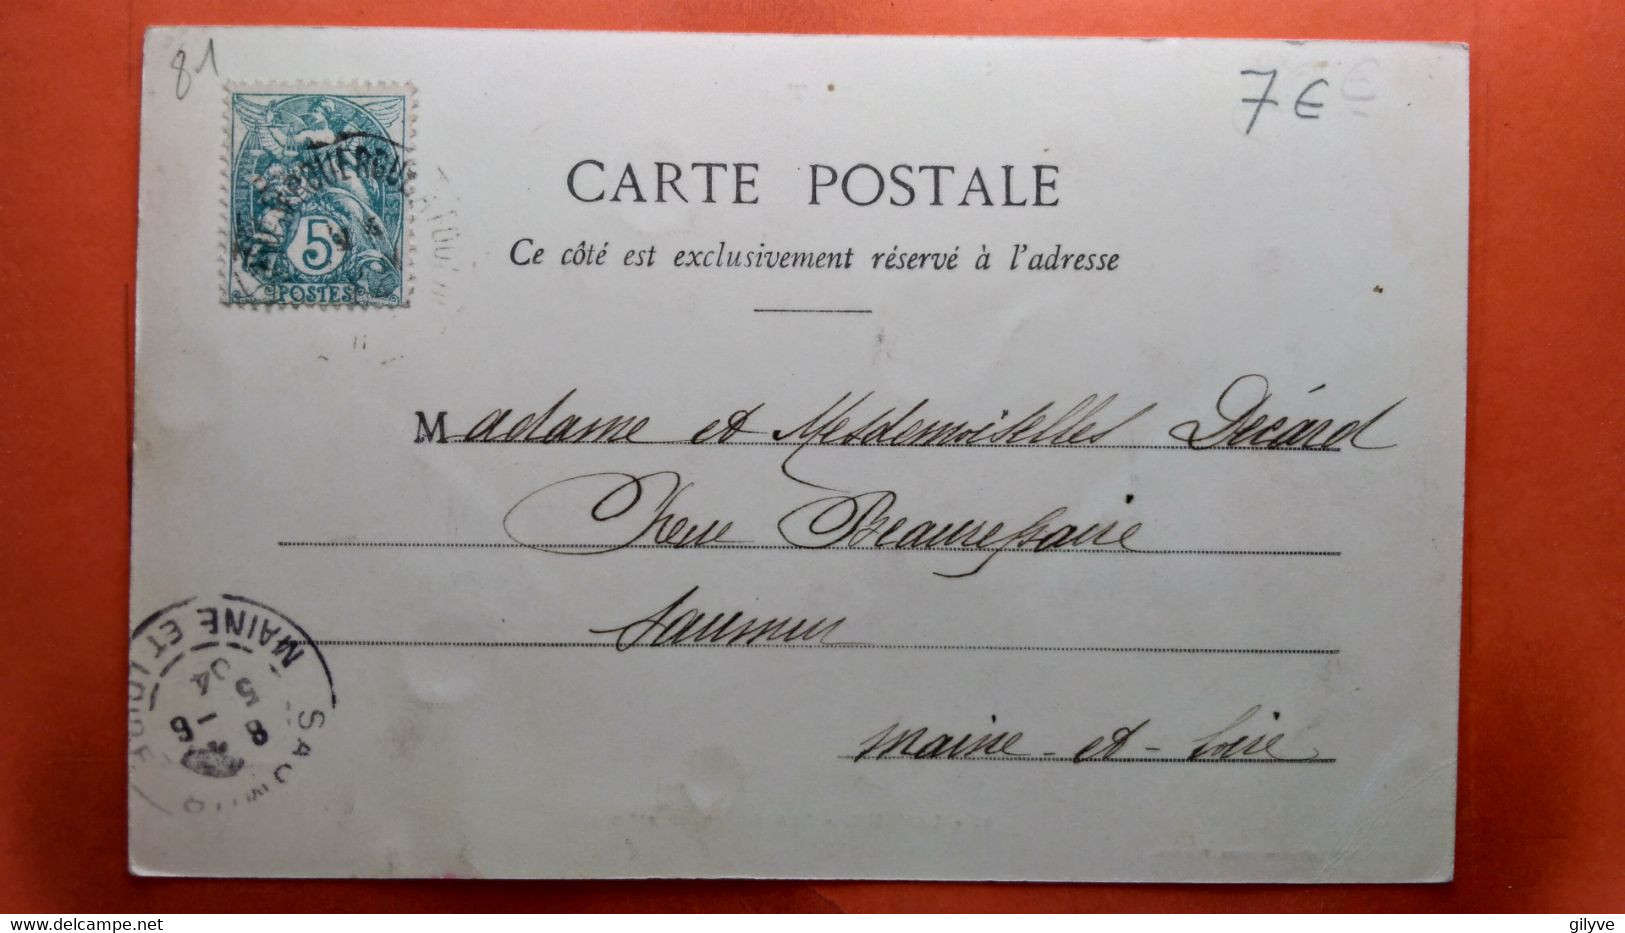 81
7€
5
POSTES
CARTE POSTALE
Ce côté est exclusivement réservé à l'adresse
Madame et Mesdemoiselles Decárd
Rue Beaurepaire
Saumur
Maine-et-Loire
SAUMUR
MAINE ET LOIRE
8 - 6
5
04
gilyve